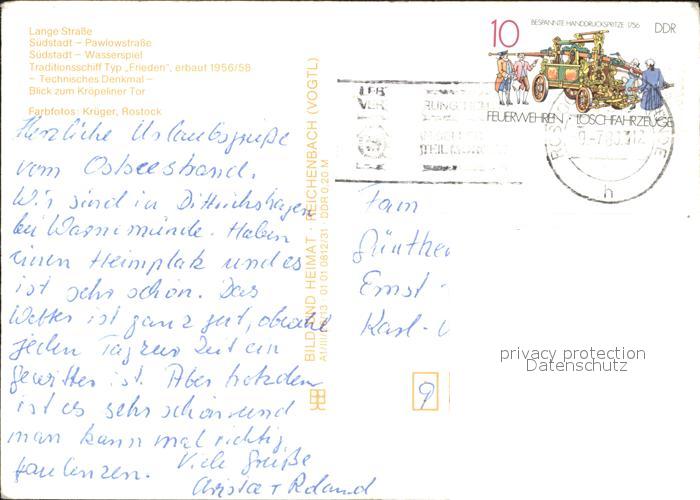 Lange Straße
Südstadt – Pawlowstraße
Südstadt – Wasserspiel
Traditionsschiff Typ „Frieden", erbaut 1956/58
– Technisches Denkmal –
Blick zum Kröpeliner Tor
Farbfotos: Krüger, Rostock
Herzliche Urlaubsgrüße
vom Ostseestrand.
Wir sind in Dittrichshagen
bei Warnemünde. Haben
einen Heimplatz und es
ist sehr schön. Das
Wetter ist ganz gut, obwohl
jeden Tag zur Zeit ein
Gewitter ist. Aber trotzdem
ist es sehr schön und
man kann mal richtig
faulenzen. Viele Grüße
Christa + Roland
BILD UND HEIMAT · REICHENBACH (VOGTL)
01 01 0812/31 DDR 0,20 M
10
BESPANNTE HANDDRUCKSPRITZE 1756
DDR
FEUERWEHREN · LÖSCHFAHRZEUGE
h
Fam
Günther
Ernst -
Karl-
9
privacy protection
Datenschutz